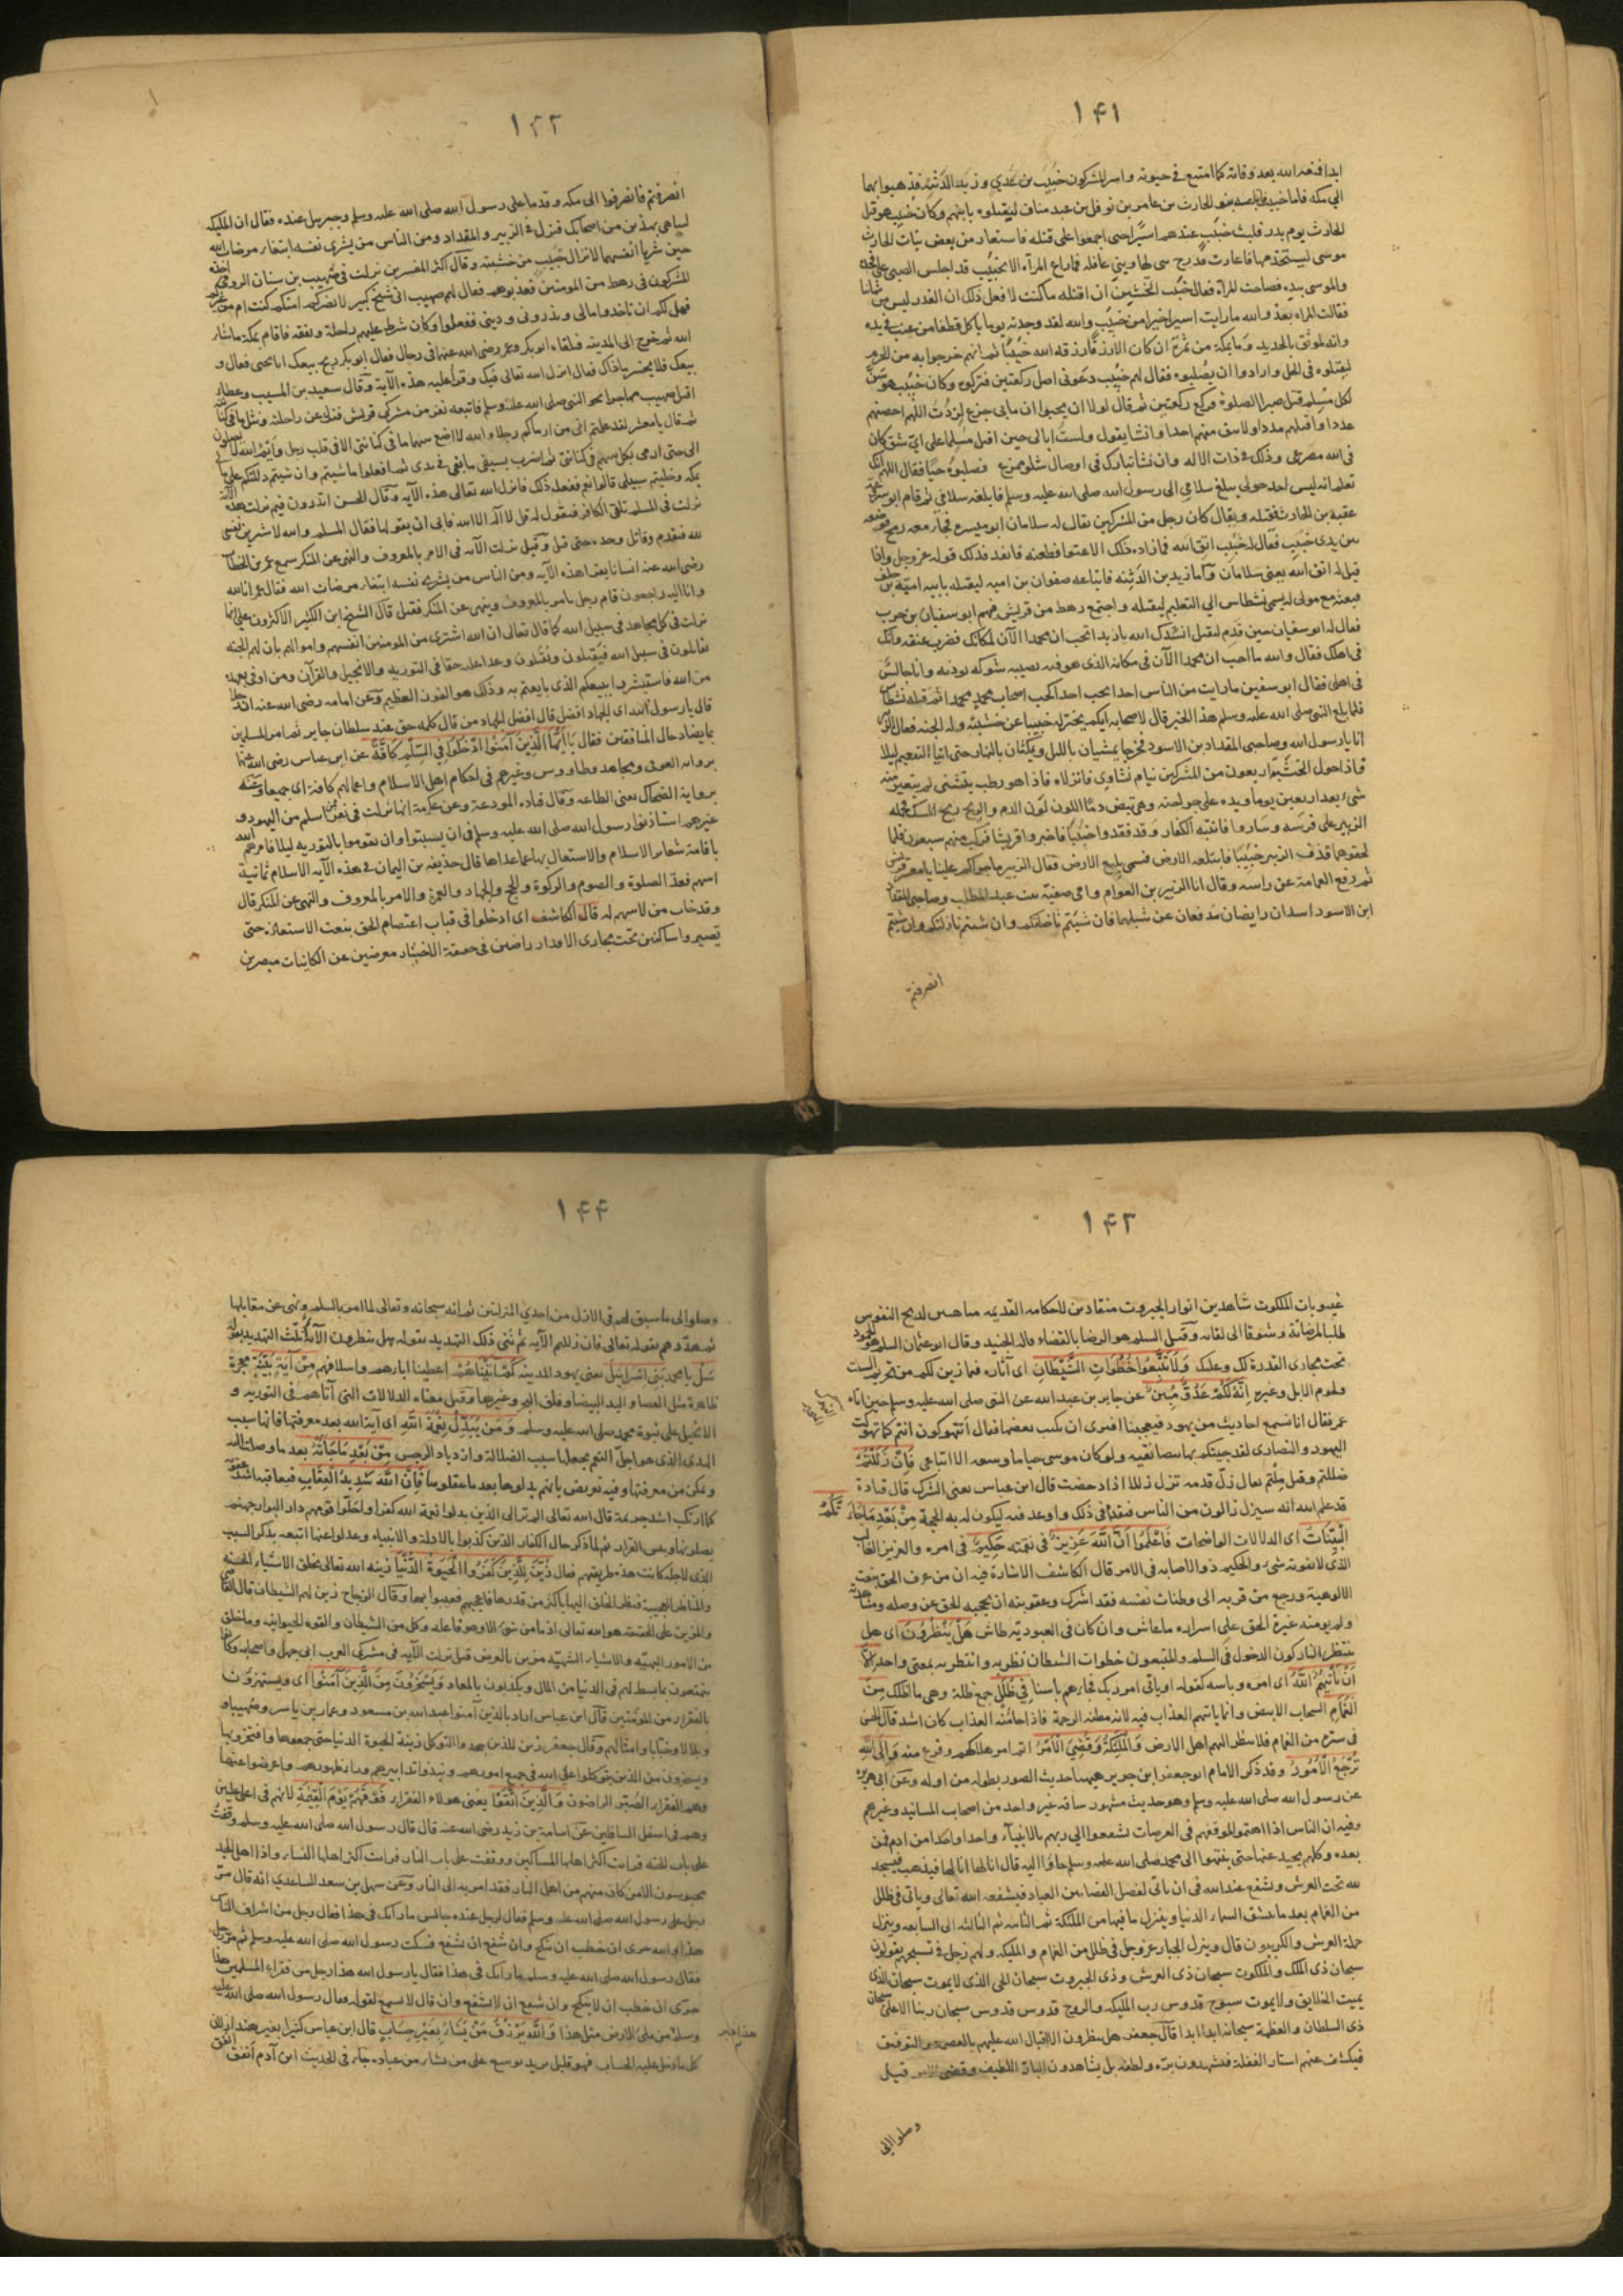 ۱۴۱
ابدا فمنعه الله بعد وفاته كما امتنع في حيوته واسر المشركون خبيب بن عدي وزيد الدثنه فذهبوا بهما
الي مكه فاما خبيب بنو الحارث بن عامر بن نوفل بن عبد مناف ليقتلوه بابيهم وكان خبيب هو قتل
الحارث يوم بدر فلبث خبيب عندهم اسيرا حتى اجمعوا على قتله فاستعار من بعض بنات الحارث
موسى ليستحد بها فاعارت فدرج بني لها وهي غافله فما راع المرآه الا بخبيب قد اجلس الصبي على فخذه
والموسى بيده فصاحت المرآة فقال خبيب اتخشين ان اقتله ما كنت لا فعل ذلك ان الغدر ليس من شاننا
فقالت المراه بعد والله ما رايت اسيرا خيرا من خبيب والله لقد وجدته يوما ياكل قطفا من عنب في يده
وانه لموثق بالحديد وما بمكة من ثمرة ان كان الا رزقا رزقه الله خبيبا ثم انهم خرجوا به من الحرم
ليقتلوه في الحل وارادوا ان يصلبوه فقال لهم خبيب دعوني اصل ركعتين فتركوه وكان خبيب هو سن
لكل مسلم قتل صبرا الصلوة فركع ركعتين ثم قال لولا ان يحسبوا ان ما بي جزع لزدت اللهم احصهم
عددا واقتلهم بددا ولا تبق منهم احدا وانشا يقول ولست ابالي حين اقتل مسلما على اي شق كان
في الله مصرعي وذلك في ذات الاله وان يشا يبارك في اوصال شلو ممزع فصلبوه حيا فقال اللهم انك
تعلم انه ليس احد حولي يبلغ سلامي الى رسول الله صلى الله عليه وسلم فابلغه سلامي ثم قام ابو سروعة
عقبة بن الحارث فقتله ويقال كان رجل من المشركين يقال له سلامان ابو ميسره فجآ معه رمح فوضعه
بين يدي خبيب فقال له خبيب اتق الله فما زاده ذلك الا عتوا فطعنه فانفذ فذلك قوله عز وجل واذا
قيل له اتق الله يعني سلامان واما زيد بن الدثنه فابتاعه صفوان بن اميه ليقتله بابيه اميه بن خلف
فبعثه مع مولى له يسمى نسطاس الي التنعيم ليقتله واجتمع رهط من قريش فيهم ابو سفيان بن حرب
فقال له ابو سفيان حين قدم ليقتل انشدك الله يا زيد اتحب ان محمدا الآن لمكانك فضرب عنقه وانك
في اهلك فقال والله ما احب ان محمدا الآن في مكانه الذي هو فيه تصيبه شوكة توذيه وانا جالس
في اهلي فقال ابو سفين ما رايت من الناس احدا يحب احدا كحب اصحاب محمد محمدا ثم قتله نسطاس
فلما بلغ النبي صلى الله عليه وسلم هذا الخبر قال لاصحابه ايكم يختزل خبيبا عن خشبته وله الجنه فقال الزبير
انا يا رسول الله وصاحبي المقداد بن الاسود فخرجا يمشيان بالليل ويكمنان بالنهار حتى اتيا التنعيم ليلا
فاذا حول الخشبة اربعون من المشركين نيام نشاوى فانزلاه فاذا هو رطب يتثنى لم يتغير منه
شيء بعد اربعين يوما ويده على جراحته وهي تبض دما اللون لون الدم والريح ريح المسك فحمله
الزبير على فرسه وساروا فانتبه الكفار وقد فقدوا خبيبا فاخبروا قريشا فركب منهم سبعون فلما
لحقوهما قذف الزبير خبيبا فابتلعه الارض فسمى بليع الارض فقال الزبير ما جراكم علينا يا معشر قريش
ثم رفع العمامة عن راسه وقال انا الزبير بن العوام وامي صفية بنت عبد المطلب وصاحبي المقداد
ابن الاسود اسدان رابضان يدفعان عن شبلهما فان شئتم ناضلتكم وان شئتم نازلتكم وان شئتم
انصرفتم
۱۴۲
انصرفتم فانصرفوا الى مكه وقدما على رسول الله صلى الله عليه وسلم وجبريل عنده فقال ان المليكه
لتباهي بهذين من اصحابك فنزل في الزبير والمقداد ومن الناس من يشري نفسه ابتغاء مرضات الله
حين شريا انفسهما لانزال خبيب من خشبته وقال اكثر المفسرين نزلت في صهيب بن سنان الرومي اخذه
المشركون في رهط من المومنين فعذبوهم فقال لهم صهيب اني شيخ كبير لا يضركم امنكم كنت ام من غيركم
فهل لكم ان تاخذوا مالي وتذروني وديني ففعلوا وكان شرط عليهم راحلة ونفقه فاقام بمكة ما شاء
الله ثم خرج الى المدينه فتلقاه ابو بكر وعمر رضى الله عنهما في رجال فقال ابو بكر ربح بيعك ابا يحيى فقال و
بيعك فلا يخسر ما ذاك فقال انزل الله تعالى فيك وقرأ عليه هذه الآية وقال سعيد بن المسيب وعطاء
اقبل صهيب مهاجرا نحو النبي صلى الله عليه وسلم فاتبعه نفر من مشركي قريش فنزل عن راحلته ونثل ما في كنانته
ثم قال يا معشر لقد علمتم اني من ارماكم رجلا والله لا اضع سهما ما في كنانتي الا في قلب رجل وايم الله لا تصلون
الي حتى ارمي بكل سهم في كنانتي ثم اضرب بسيفي ما بقي في يدي ثم افعلوا ما شيتم وان شيتم دللتكم على مالي
بمكه وخليتم سبيلي قالوا نعم ففعل ذلك فانزل الله تعالى هذه الآيه وقال الحسن اتدرون فيم نزلت هذه الآيه
نزلت في المسلم تلقى الكافر فيقول له قل لا اله الا الله فابى ان يقولها فقال المسلم والله لا شرين نفسي
لله فتقدم وقاتل وحده حتى قتل وقيل نزلت الآيه في الامر بالمعروف والنهي عن المنكر سمع عمر بن الخطاب
رضي الله عنه انسانا يقرا هذه الآيه ومن الناس من يشري نفسه ابتغاء مرضات الله فقال عمر انا لله
وانا اليه راجعون قام رجل يامر بالمعروف وينهى عن المنكر فقتل قال الشيخ ابن الكثير الاكثرون على انها
نزلت في كل مجاهد في سبيل الله كما قال تعالى ان الله اشترى من المومنين انفسهم واموالهم بأن لهم الجنه
يقاتلون في سبيل الله فيقتلون ويقتلون وعدا عليه حقا في التوريه والانجيل والقرآن ومن اوفى بعهده
من الله فاستبشروا ببيعكم الذي بايعتم به وذلك هو الفوز العظيم وعن امامه رضي الله عنه ان رجلا
قال يا رسول الله اي الجهاد افضل قال افضل الجهاد من قال كلمه حق عند سلطان جاير ثم امر المسلمين
بما يضاد حال المنافقين فقال يا ايها الذين آمنوا ادخلوا في السلم كافة عن ابن عباس رضى الله عنهما
برواية العوفي ومجاهد وطاووس وغيرهم في احكام اهل الاسلام واعمالهم كافة اي جميعا وعنه
برواية الضحاك يعني الطاعه وقال قتاده الموادعة وعن عكرمة انها نزلت في نفر ممن اسلم من اليهود و
غيرهم استاذنوا رسول الله صلى الله عليه وسلم في ان يسبتوا وان يقوموا بالتوريه ليلا فامرهم الله
باقامة شعائر الاسلام والاشتغال بها عما عداها قال حذيفه بن اليمان في هذه الآيه الاسلام ثمانية
اسهم فعد الصلوة والصوم والزكوة والحج والجهاد والعمرة والامر بالمعروف والنهي عن المنكر قال
وقد خاب من لا سهم له قال الكاشف اي ادخلوا في قباب اعتصام الحق بنعت الاستعاذة حتى
تصيروا ساكنين تحت مجاري الاقدار راضين في حقيقة الاختيار معرضين عن الكائنات مبصرين
۱۴۳
غيوبات الملكوت شاهدين انوار الجبروت منقادين لاحكامه القديمه لذبح النفوس
طلبا لمرضاته وشوقا الى لقائه وقيل السلم هو الرضا بالقضاء قاله الجنيد وقال ابو عثمان السلم هو
تحت مجاري القدرة لك وعليك ولا تتبعوا خطوات الشيطان اي آثاره فما زين لكم من تحريم السبت
ولحوم الابل وغيره انه لكم عدو مبين عن جابر بن عبد الله عن النبي صلى الله عليه وسلم حين اتاه
عمر فقال انا نسمع احاديث من يهود فيعجبنا افترى ان نكتب بعضها فقال أمتهوكون انتم كما تهوكت
اليهود والنصارى لقد جيتكم بها بيضا نقيه ولو كان موسى حيا ما وسعه الا اتباعي فان زللتم
ضللتم وقيل ملتم يقال زل قدمه تزل زللا اذا دحضت قال ابن عباس يعني الشرك قال قتادة
قد علم الله انه سيزل زالون من الناس فتقدم في ذلك واوعد فيه ليكون له به الحجة من بعد ما جآءتكم
البينات اى الدلالات الواضحات فاعلموا ان الله عزيز في نقمته حكيم في امره والعزيز الغالب
الذي لا يفوته شيء والحكيم ذو الاصابه في الامر قال الكاشف الاشارة فيه ان من عرف الحق بنعت
الالوهية ورجع من قربه الى وطنات نفسه فقد اشرك وعقوبته ان يحجبه الحق عن وصله ومشاهدته
ولم يومنه غيرة الحق على اسراره ما عاش وان كان في العبوديه طاش هل ينظرون اى هل
ينتظر التاركون الدخول في السلم والمتبعون خطوات الشيطان نظرته وانتظرته بمعنى واحد الا
ان ياتيهم الله اى امره وباسه كقوله او ياتي امر ربك فجاءهم باسنا في ظلل جمع ظلة وهي ما اظلك من
الغمام السحاب الابيض وانما ياتيهم العذاب فيه لانه مظنه الرحمة فاذا جا منه العذاب كان اشد قال الحسن
في سترة من الغمام فلا ينظر اليهم اهل الارض والمليكة وقضي الامر اتم امر هلاكهم وفرغ منه والى الله
ترجع الامور وقد ذكر الامام ابو جعفر ابن جرير هيهنا حديث الصور بطوله من اوله وعن ابي هريره
عن رسول الله صلى الله عليه وسلم وهو حديث مشهور ساقه غير واحد من اصحاب المسانيد وغيرهم
وفيه ان الناس اذا اهتموا لموقفهم في العرصات تشفعوا الى ربهم بالانبياء واحدا واحدا من ادم فمن
بعده وكلهم يحيد عنها حتى ينتهوا الى محمد صلى الله عليه وسلم جاؤا اليه قال انا لها انا لها فيذهب فيسجد
لله تحت العرش ويشفع عند الله في ان ياتي لفصل القضا بين العباد فيشفعه الله تعالى وياتي في ظلل
من الغمام بعد ما ينشق السماء الدنيا وينزل ما فيها من المليكة ثم الثانيه ثم الثالثه الى السابعه وينزل
حملة العرش والكروبيون قال وينزل الجبار عز وجل في ظلل من الغمام والمليكه ولهم زجل في تسبيحهم يقولون
سبحان ذي الملك والملكوت سبحان ذي العرش وذي الجبروت سبحان الحي الذي لا يموت سبحان الذي
يميت الخلايق ولا يموت سبوح قدوس رب المليكه والروح قدوس قدوس سبحان ربنا الاعلى سبحان
ذي السلطان والعظمة سبحانه ابدا ابدا قال جعفر هل ينظرون الا اقبال الله عليهم بالعصمه والتوفيق
فيكشف عنهم استار الغفلة فيشهدون بره ولطفه بل يشاهدون البار اللطيف وقضي الامر قيل
وصلوا الي
۱۴۴
وصلوا الى ما سبق لهم في الازل من احدي المنزلتين ثم انه سبحانه وتعالى لما امر بالسلم ونهى عن مقابلها
ثم هددهم بقوله تعالى فان زللتم الآيه ثم ثنى ذلك التهديد بقوله هل ينظرون الآيه ثلث التهديد بقوله
سل يا محمد بني اسرائيل يعني يهود المدينه كم آتيناهم اعطينا اباءهم واسلافهم من آية بينة معجزة
ظاهرة مثل العصا واليد البيضا وفلق البحر وغيرها وقيل معناه الدلالات التي آتاهم في التوريه و
الانجيل على نبوة محمد صلى الله عليه وسلم ومن يبدل نعمة الله اى آية الله بعد معرفتها فانها سبب
الهدى الذي هو اجل النعم بجعلها سبب الضلالة وازدياد الرجس من بعد ما جاءته بعد ما وصلت اليه
وتمكن من معرفتها وفيه تعريض بانهم بدلوها بعد ما عقلوها فان الله شديد العقاب فيعاقبه اشد عقوبة
كما ارتكب اشد جريمة قال الله تعالى الم تر الى الذين بدلوا نعمة الله كفرا واحلوا قومهم دار البوار جهنم
يصلونها وبئس القرار ثم لما ذكر حال الكفار الذين كذبوا بالادلة والانبياء وعدلوا عنها اتبعه بذكر السبب
الذي لاجله كانت هذه طريقتهم فقال زين للذين كفروا الحيوة الدنيا زينه الله تعالى بخلق الاشياء الحسنه
والمناظر العجيبة فنظر الخلق اليها باكثر من قدرها فاعجبهم فعبدوا بها وقال الزجاج زين لهم الشيطان قال القاضي
والمزين على الحقيقة هو الله تعالى اذ ما من شيء الا وهو فاعله وكل من الشيطان والقوه الحيوانيه وما خلق
من الامور البهيه والاشياء الشهيه مزين بالعرض قيل نزلت الآيه في مشركي العرب ابي جهل واصحابه وكانوا
يتنعمون بما بسط لهم في الدنيا من المال ويكذبون بالمعاد ويسخرون من الذين آمنوا اى ويستهزؤن
بالفقراء من المؤمنين قال ابن عباس اراد بالذين آمنوا عبد الله بن مسعود وعمار بن ياسر وصهيبا و
وبلالا وخبابا وامثالهم وقال جعفر زين للذين جحدوا التوكل زينة الحيوة الدنيا حتى جمعوها وافتخروا بها
ويسخرون من الذين يتوكلوا على الله في جميع امورهم ونبذوا تدابيرهم وراء ظهورهم واعرضوا عنها
وهم الفقراء الصبر الراضون والذين اتقوا يعني هولاء الفقراء فوقهم يوم القيمة لانهم في اعلى عليين
وهم في اسفل السافلين عن اسامة بن زيد رضى الله عنه قال قال رسول الله صلى الله عليه وسلم وقفت
على باب الجنه فرايت اكثر اهلها المساكين ووقفت على باب النار فرايت اكثر اهلها النساء واذا اهل الجد
محبوسون الا من كان منهم من اهل النار فقد امر به الى النار وعن سهل بن سعد الساعدي انه قال مر
رجل على رسول الله صلى الله عليه وسلم فقال لرجل عنده جالس ما رايك في هذا فقال رجل من اشراف الناس
هذا والله حري ان خطب ان ينكح وان شفع ان يشفع فسكت رسول الله صلى الله عليه وسلم ثم مر رجل
فقال رسول الله صلى الله عليه وسلم ما رايك في هذا فقال يا رسول الله هذا رجل من فقراء المسلمين هذا
حرى ان خطب ان لا ينكح وان شفع ان لا يشفع وان قال لا يسمع لقوله فقال رسول الله صلى الله عليه
وسلم من ملئ الارض مثل هذا والله يرزق من يشاء بغير حساب قال ابن عباس كثيرا بغير مقدار لان
كل ما دخل عليه الحساب فهو قليل يريد يوسع على من يشاء من عباده جاء في الحديث ابن آدم أنفق انفق
هذا خير